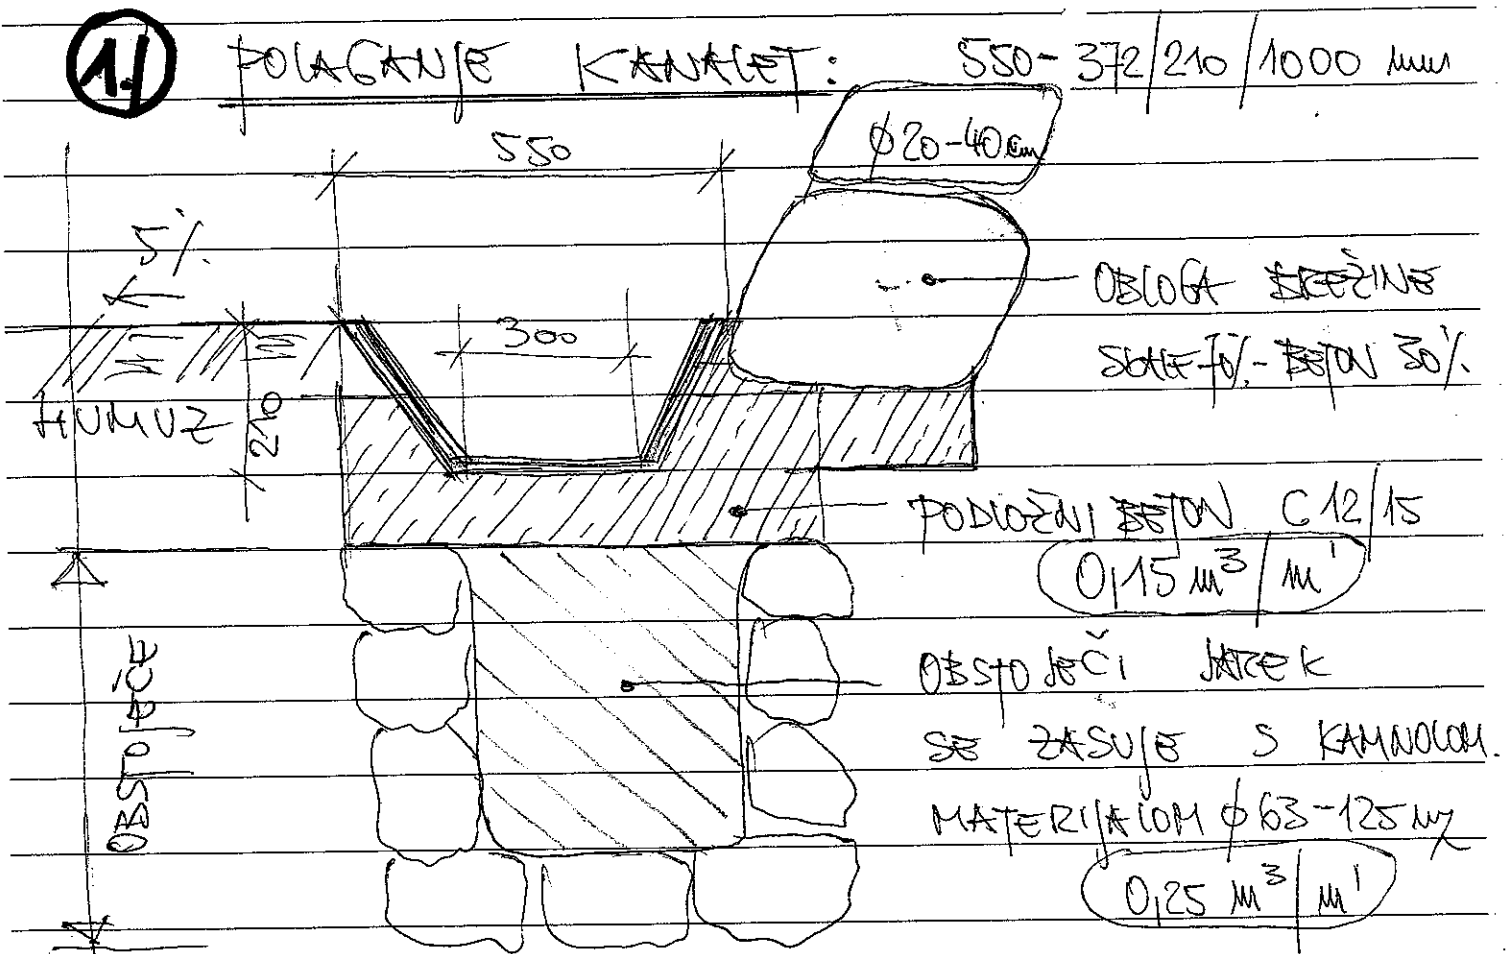 1./ POLAGANJE KANALET: 550-372/210/1000 mm
φ20-40cm
550
5%
OBLOGA BREŽINE
300
SUHE 70%-BETON 30%
HUMUZ
210
PODLOŽNI BETON C12/15
0,15 m³/m'
OBSTOJEČI JAREK
OBSTOJEČE
SE ZASUJE S KAMNOLOM.
MATERIJALOM φ63-125
0,25 m³/m'